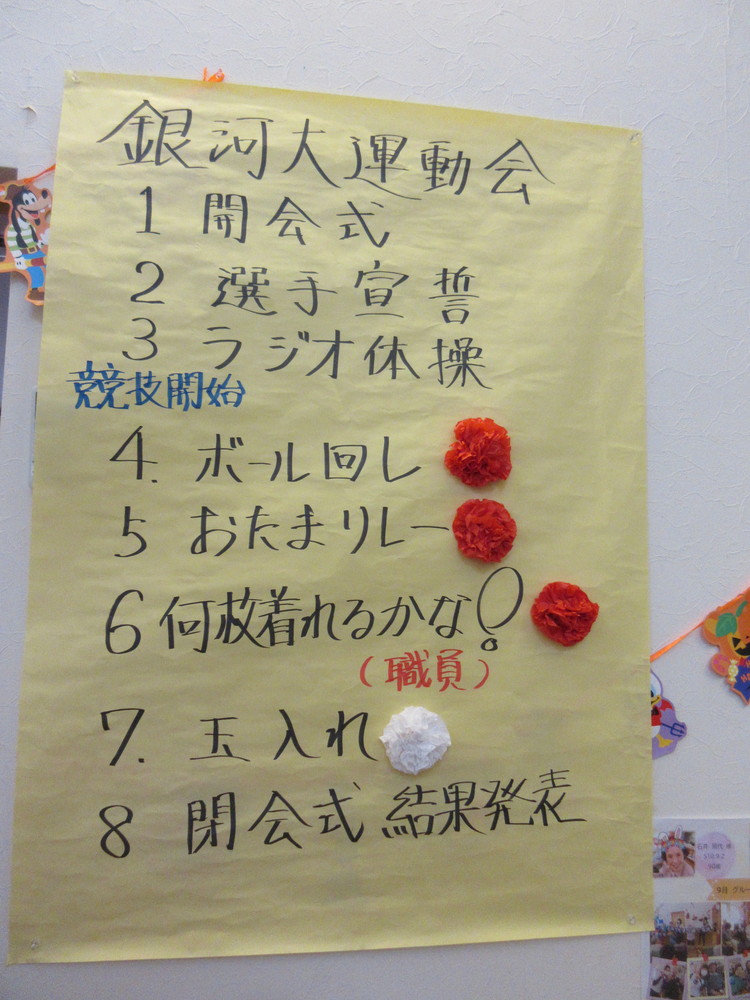 銀河大運動会
1 開会式
2 選手宣誓
3 ラジオ体操
競技開始
4. ボール回し
5 おたまリレー
6 何枚着れるかな!
(職員)
7. 玉入れ
8 閉会式 結果発表
9月 グルー